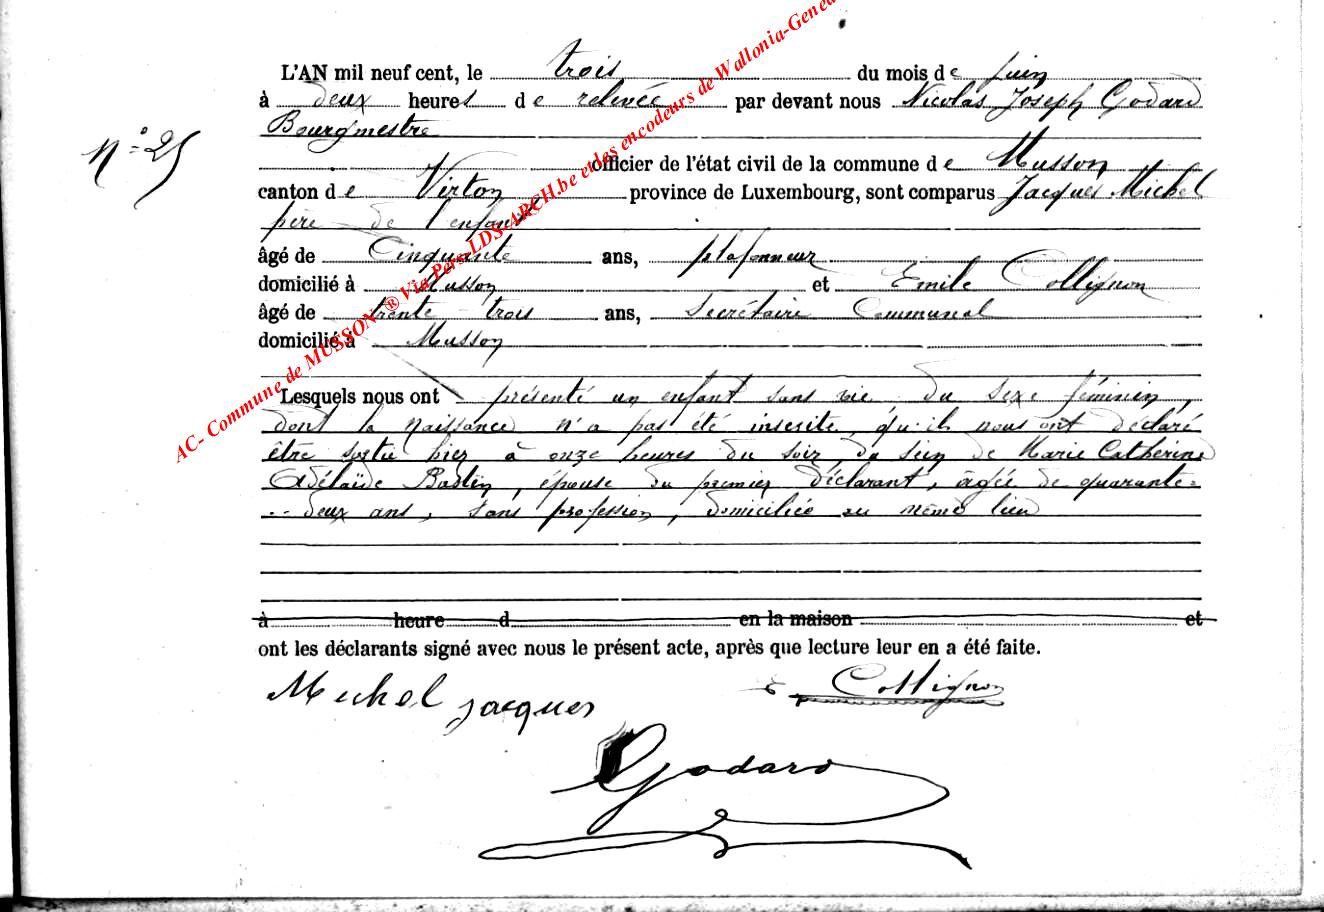 AC- Commune de MUSSON ® Via Pers-LDS-ARCH.be et des encodeurs de Wallonia-Genea
L'AN mil neuf cent, le trois du mois de juin
à deux heures de relevée par devant nous Nicolas Joseph Godard
Bourgmestre
N° 25
officier de l'état civil de la commune de Musson
canton de Virton province de Luxembourg, sont comparus Jacques Michel
père de l'enfant
âgé de Cinquante ans, plafonneur
domicilié à Musson et Emile Collignon
âgé de trente-trois ans, Secrétaire Communal
domicilié à Musson
Lesquels nous ont présenté un enfant sans vie du sexe féminin,
dont la naissance n'a pas été inscrite, qu'ils nous ont déclaré
être sortie hier à onze heures du soir, du sein de Marie Catherine
Adélaïde Bastin, épouse du premier déclarant, âgée de quarante=
deux ans, sans profession, domiciliée au même lieu
à heure d en la maison et
ont les déclarants signé avec nous le présent acte, après que lecture leur en a été faite.
Michel Jacques E Collignon
Godard